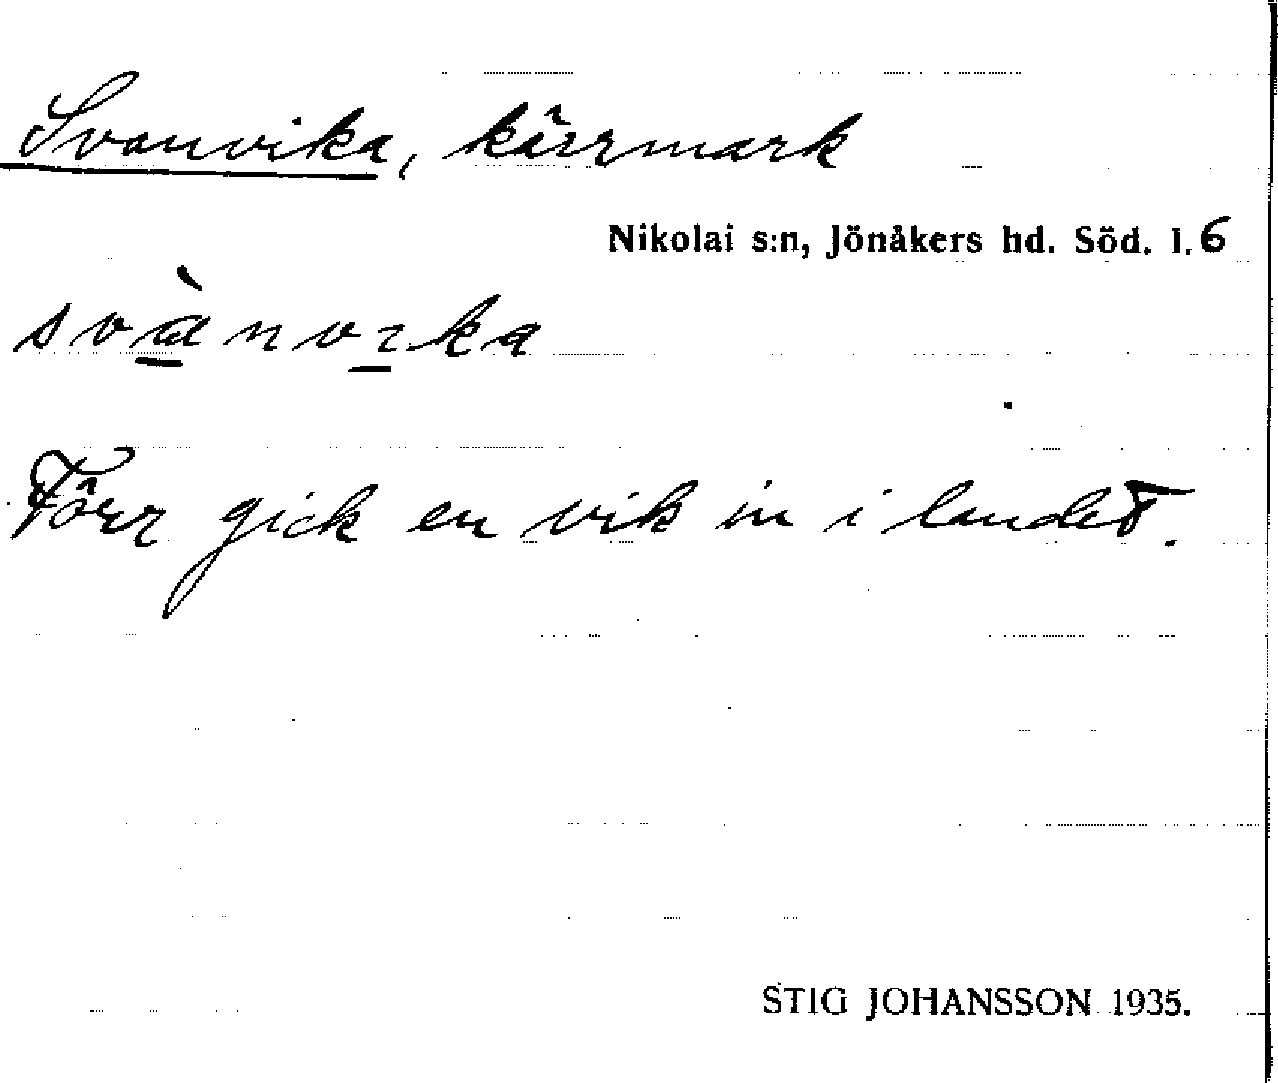 Svanvika, kärrmark
Nikolai s:n, Jönåkers hd. Söd. l. 6
svànvıka
Förr gick en vik in i landet.
STIG JOHANSSON 1935.